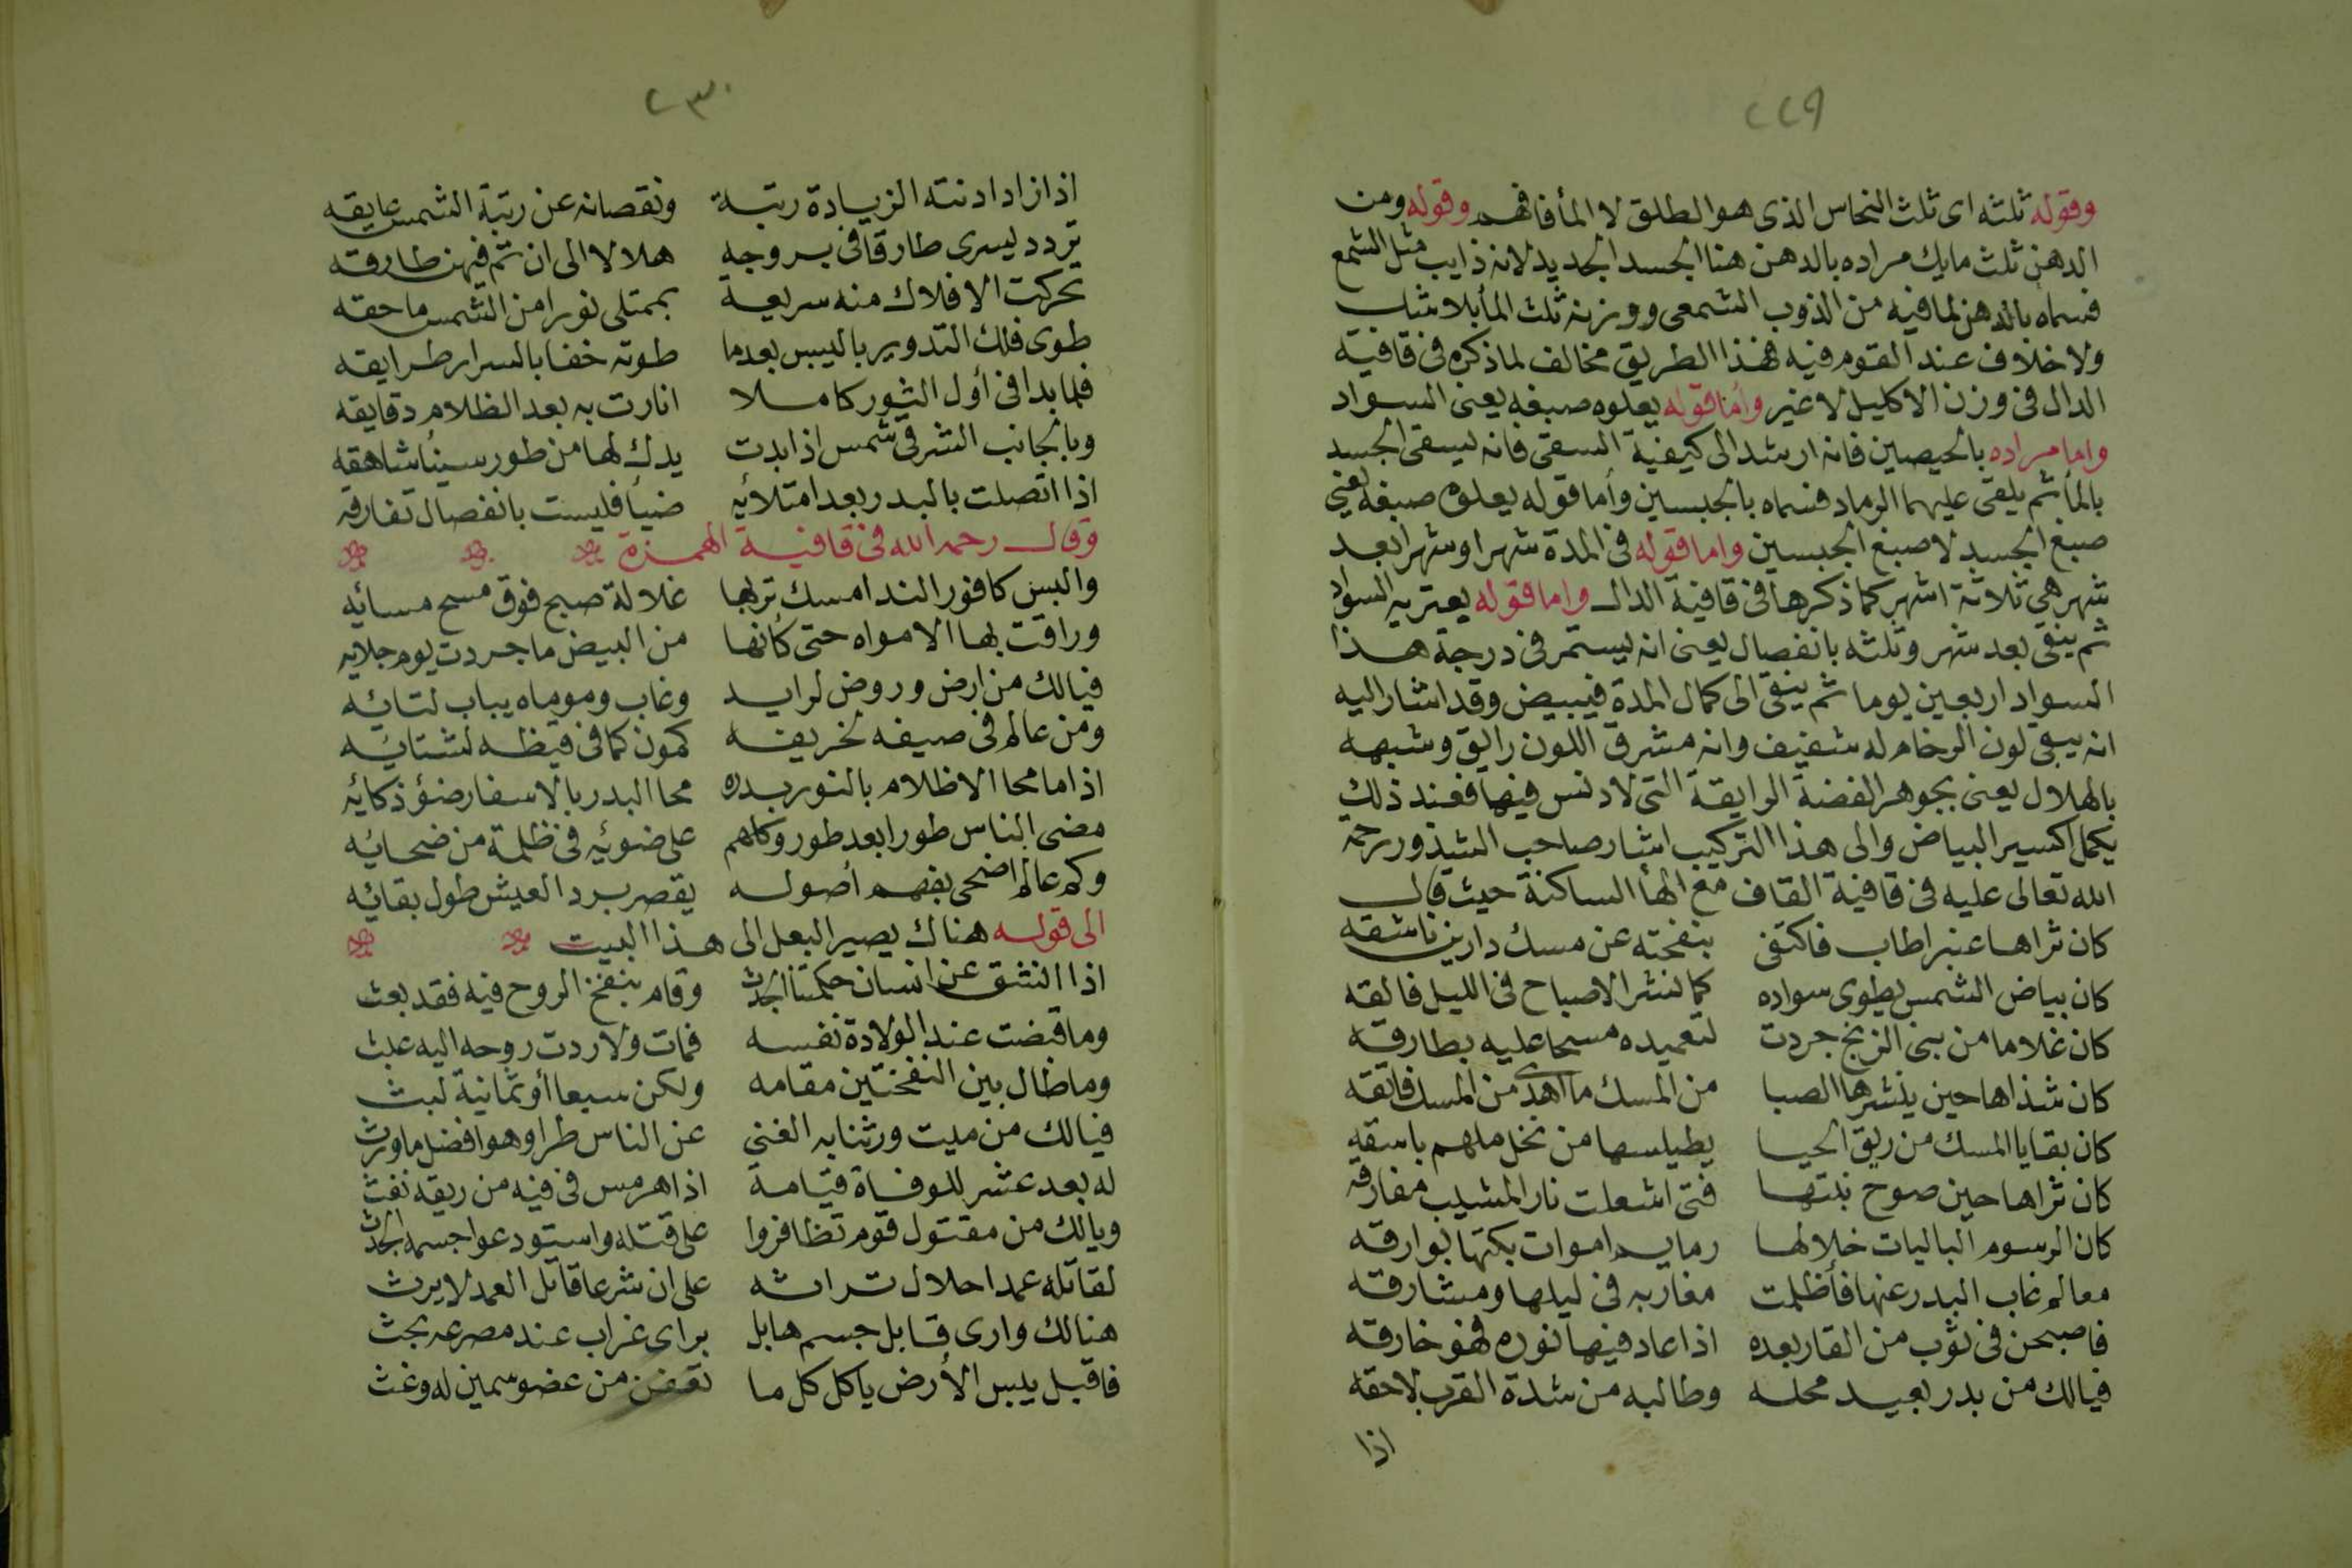 ٢٢٩
وقوله ثلثه اى ثلث النحاس الذى هو الطلق لا المأ فافهم وقوله ومن
الدهن ثلث مايك مراده بالدهن هنا الجسد الجديد لانه ذايب مثل الشمع
فسماه بالدهن لما فيه من الذوب الشمعى ووزنه ثلث المأ بلا شك
ولا خلاف عند القوم فيه فهذا الطريق مخالف لما ذكره فى قافية
الدال فى وزن الاكليل لا غير وأما قوله يعلوه صبغه يعنى السواد
واما مراده بالحيصين فانه ارشد الى كيفية السقى فانه يسقى الجسد
بالمأ ثم يلقى عليهما الرماد فسماه بالجبسين وأما قوله يعلوه صبغه يعنى
صبغ الجسد لا صبغ الجبسين واما قوله فى المدة شهرا وشهرا بعد
شهر هي ثلاثة اشهر كما ذكرها فى قافية الدال واما قوله يعتريه السواد
ثم ينقى بعد شهر وثلثه بانفصال يعنى انه يستمر فى درجة هذا
السواد اربعين يوما ثم ينقى الى كمال المدة فيبيض وقد اشار اليه
انه يبقى لون الرخام له شفيف وانه مشرق اللون رايق وشبهه
بالهلال يعنى بجوهر الفضة الرايقة التى لا دنس فيها فعند ذلك
يكمل اكسير البياض والى هذا التركيب اشار صاحب الشذور رحمة
الله تعالى عليه فى قافية القاف مع الهأ الساكنة حيث قال
كان ثراها عنبرا طاب فاكتفى بنفحته عن مسك دارين ناشقه
كان بياض الشمس يطوى سواده كما نشر الاصباح فى الليل فالقه
كان غلاما من بنى الزنج جردت لتعميده مسحا عليه بطارقه
كان شذاها حين ينشرها الصبا من المسك ما اهدى من المسك فاتقه
كان بقايا المسك من ريق الحيا يطيلسها من نخل ملهم باسقه
كان ثراها حين صوح نبتها فتى اشعلت نار المشيب مفارقه
كان الرسوم الباليات خلالها رمايم اموات بكتها بوارقه
معالم غاب البدر عنها فأظلمت مغاربه فى ليلها ومشارقه
فاصبحن فى ثوب من القار بعده اذا عاد فيها نوره فهو خارقه
فيالك من بدر بعيد محله وطالبه من شدة القرب لاحقه
اذا
٢٣٠
اذا زاد ادنته الزيادة رتبة ونقصانه عن رتبة الشمس عايقه
تردد يسرى طارقا فى بروجه هلالا الى ان تم فيهن طارقه
تحركت الافلاك منه سريعة بممتلى نورا من الشمس ماحقه
طوى فلك التدوير باليبس بعدما طوته خفا بالسرار طرايقه
فلما بدا فى أول الثور كاملا انارت به بعد الظلام دقايقه
وبالجانب الشرقى شمس اذا بدت يدك لها من طور سيناً شاهقه
اذا اتصلت بالبدر بعد امتلائه ضيأ فليست بانفصال تفارقه
وقال رحمه الله فى قافية الهمزة
والبس كافور الندا مسك تربها غلالة صبح فوق مسح مسائه
وراقت بها الامواه حتى كأنها من البيض ما جردت يوم جلائه
فيالك من ارض وروض لرايد وغاب وموماه يباب لتائه
ومن عالم فى صيفه لخريفه كمون كما فى قيظه لشتائه
اذا ما محا الاظلام بالنور بدره محا البدر بالاسفار ضؤ ذكائه
مضى الناس طورا بعد طور وكلهم على ضوئه فى ظلمة من ضحائه
وكم عالم اضحى بفهم أصوله يقصر برد العيش طول بقائه
الى قوله هناك يصير البعل الى هذا البيت
اذا انشق عن انسان حكمتنا الجدث وقام بنفخ الروح فيه فقد بعث
وما قبضت عند الولادة نفسه فمات ولا ردت روحه اليه عبث
وما طال بين النفختين مقامه ولكن سبعا أو ثمانية لبث
فيالك من ميت ورثنا به الغنى عن الناس طرا وهو افضل ما ورث
له بعد عشر للوفاة قيامة اذا هرمس فى فيه من ريقه نفث
ويالك من مقتول قوم تظافروا على قتله واستودعوا جسمه الجدث
لقاتله عمدا حلال تراثه على ان شرعا قاتل العمد لا يرث
هنالك وارى قابل جسم هابل براى غراب عند مصرعه بحث
فاقبل يبس الأرض ياكل كل ما تعفن من عضو سمين له وغث